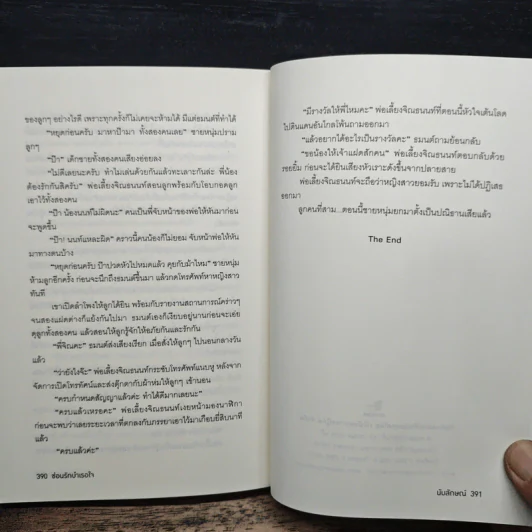 ของลูกๆ อย่างไรดี เพราะทุกครั้งก็ไม่เคยจะห้ามได้ มีแต่ธมนต์ที่ทำได้
“หยุดก่อนครับ มาหาป๊ามา ทั้งสองคนเลย” ชายหนุ่มปราม
ลูกๆ
“ป๊า” เด็กชายทั้งสองคนเสียงอ่อยลง
“ไม่ดีเลยนะครับ ทำไมเล่นด้วยกันแล้วทะเลาะกันล่ะ พี่น้อง
ต้องรักกันสิครับ” พ่อเลี้ยงจิณธนนท์สอนลูกพร้อมกับโอบกอดลูก
เอาไว้ทั้งสองคน
“ป๊า น้องนนท์ไม่ผิดนะ” คนเป็นพี่จับหน้าของพ่อให้หันมาก่อน
จะพูดขึ้น
“ป๊า! นนท์แหละผิด” คราวนี้คนน้องก็ไม่ยอม จับหน้าพ่อให้หัน
มาทางตนบ้าง
“หยุดก่อนครับ ป๊าปวดหัวไปหมดแล้ว คุยกับม้าไหม” ชายหนุ่ม
ห้ามลูกอีกครั้ง ก่อนจะนึกถึงธมนต์ขึ้นมา แล้วกดโทรศัพท์หาหญิงสาว
ทันที
เขาเปิดลำโพงให้ลูกได้ยิน พร้อมกับรายงานสถานการณ์คร่าวๆ
จนสองแฝดต่างก็แย้งกันไปมา ธมนต์เองก็เงียบอยู่นานก่อนจะเอ่ย
ดุลูกทั้งสองคน แล้วสอนให้ลูกรู้จักให้อภัยกันและรักกัน
“พี่จิณคะ” ธมนต์ส่งเสียงเรียก เมื่อสั่งให้ลูกๆ ไปนอนกลางวัน
แล้ว
“ว่ายังไงจ๊ะ” พ่อเลี้ยงจิณธนนท์กระชับโทรศัพท์แนบหู หลังจาก
จัดการเปิดโทรทัศน์และส่งตุ๊กตากับผ้าห่มให้ลูกๆ เข้านอน
“ครบกำหนดสัญญาแล้วค่ะ ทำได้ดีมากเลยนะ”
“ครบแล้วเหรอคะ” พ่อเลี้ยงจิณธนนท์เงยหน้ามองนาฬิกา
ก่อนจะพบว่าเลยระยะเวลาที่ตกลงกับภรรยาเอาไว้มาเกือบยี่สิบนาที
แล้ว
“ครบแล้วค่ะ”
390 ซ่อนรักบำเรอใจ
“มีรางวัลให้พี่ไหมคะ” พ่อเลี้ยงจิณธนนท์ที่ตอนนี้หัวใจเต้นโลด
ไปดินแดนอันไกลโพ้นถามออกมา
“แล้วอยากได้อะไรเป็นรางวัลคะ” ธมนต์ถามย้อนกลับ
“ขอน้องให้เจ้าแฝดสักคน” พ่อเลี้ยงจิณธนนท์ตอบกลับด้วย
รอยยิ้ม ก่อนจะได้ยินเสียงหัวเราะดังขึ้นจากปลายสาย
พ่อเลี้ยงจิณธนนท์จะถือว่าหญิงสาวยอมรับ เพราะไม่ได้ปฏิเสธ
ออกมา
ลูกคนที่สาม...ตอนนี้ชายหนุ่มยกมาตั้งเป็นปณิธานเสียแล้ว
The End
มับลักษณ์ 391